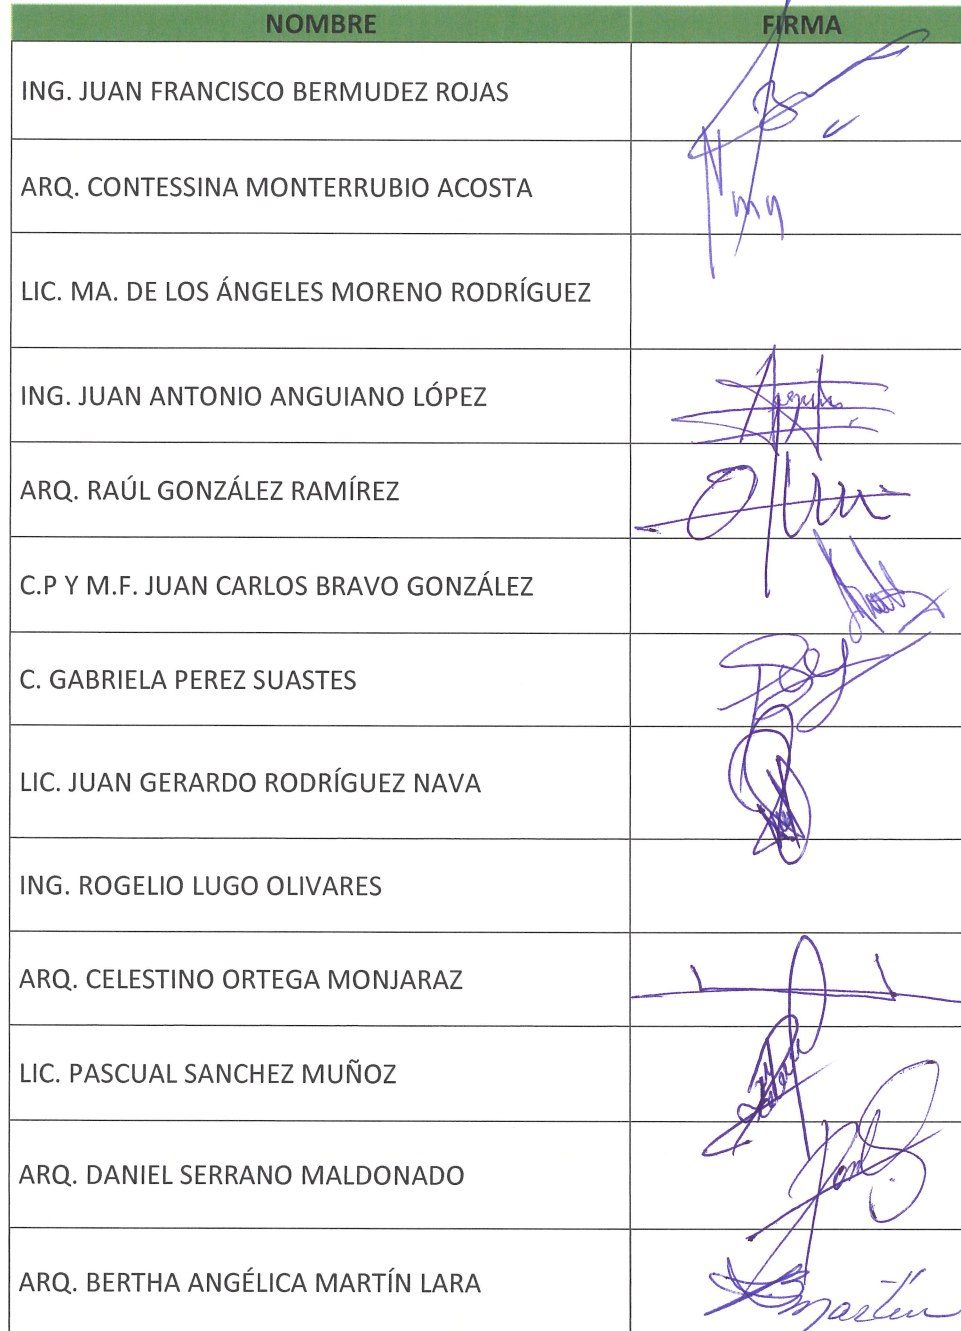 NOMBRE FIRMA
ING. JUAN FRANCISCO BERMUDEZ ROJAS
ARQ. CONTESSINA MONTERRUBIO ACOSTA
LIC. MA. DE LOS ÁNGELES MORENO RODRÍGUEZ
ING. JUAN ANTONIO ANGUIANO LÓPEZ
ARQ. RAÚL GONZÁLEZ RAMÍREZ
C.P Y M.F. JUAN CARLOS BRAVO GONZÁLEZ
C. GABRIELA PEREZ SUASTES
LIC. JUAN GERARDO RODRÍGUEZ NAVA
ING. ROGELIO LUGO OLIVARES
ARQ. CELESTINO ORTEGA MONJARAZ
LIC. PASCUAL SANCHEZ MUÑOZ
ARQ. DANIEL SERRANO MALDONADO
ARQ. BERTHA ANGÉLICA MARTÍN LARA